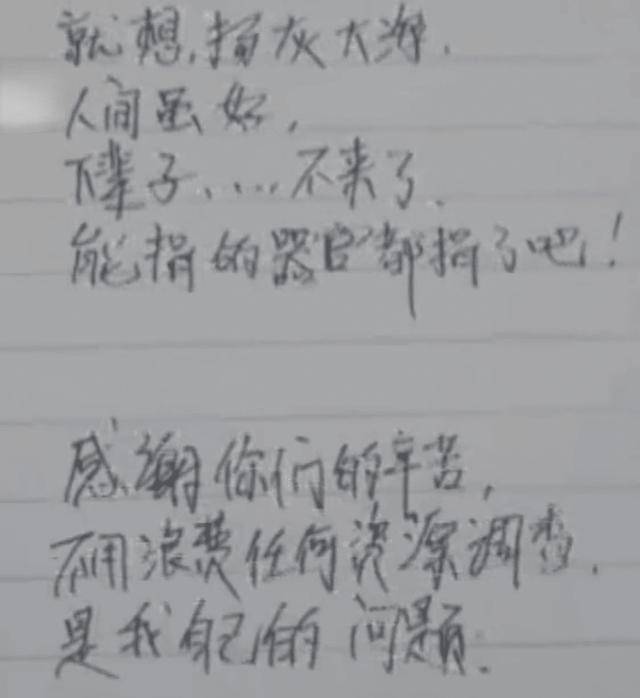 就想,扬灰大海.
人间虽好,
下辈子.....不来了.
能捐的器官都捐了吧!
感谢你们的辛苦,
不用浪费任何资源调查.
是我自己的问题.